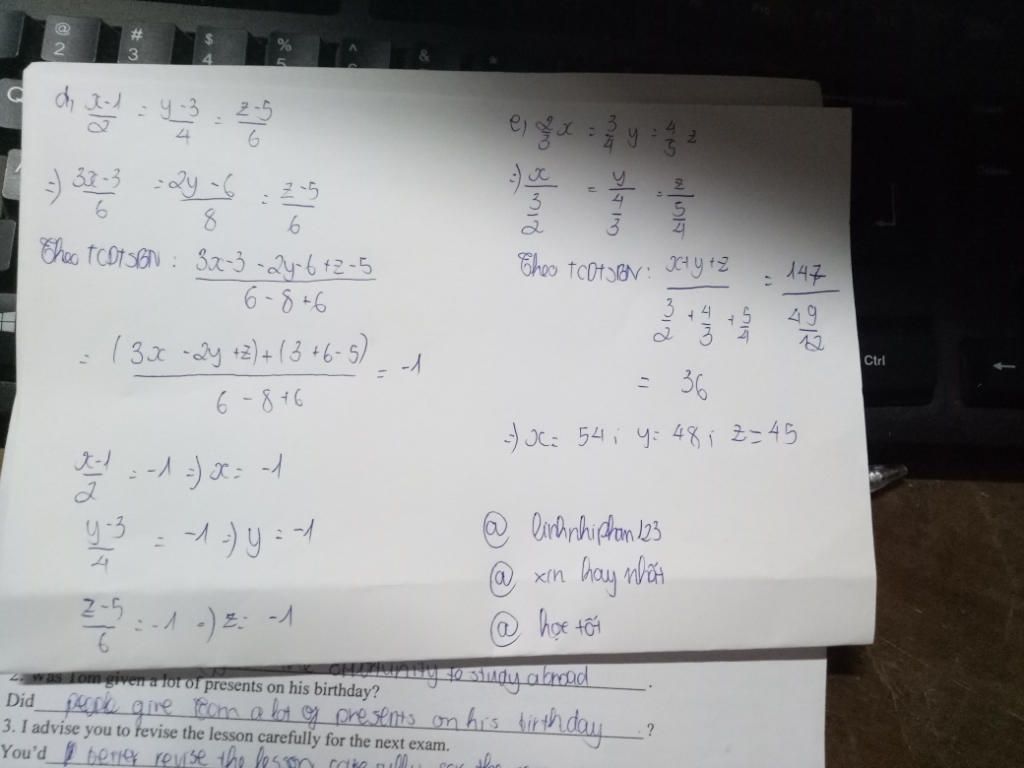 @ # $ % ^ &
2 3 4 5
Q
d, x-1/2 = y-3/4 = z-5/6
=) 3x-3/6 = 2y-6/8 = z-5/6
Theo TCDTSBN : 3x-3-2y-6+z-5/6-8+6
= (3x-2y+z)+(3+6-5)/6-8+6 = -1
x-1/2 = -1 =) x = -1
y-3/4 = -1 =) y = -1
z-5/6 = -1 =) z = -1
e, 2/3 x = 3/4 y = 4/3 z
=) x/(3/2) = y/(4/3) = z/(5/4)
Theo TCDTSBN : x+y+z/(3/2+4/3+5/4) = 147/(49/12)
= 36
=) x = 54 ; y = 48 ; z = 45
@ linhnhiphan123
@ xin hay nhất
@ học tốt
Ctrl
←
2. Was Tom given a lot of presents on his birthday?
to study abroad .
Did people give Tom a lot of presents on his birthday ?
3. I advise you to revise the lesson carefully for the next exam.
You'd better revise the lesson carefully for the